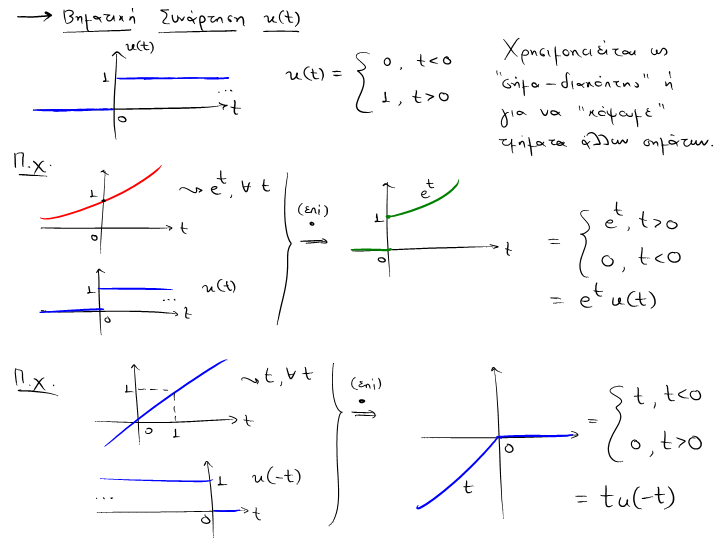 → Βηματική Συνάρτηση u(t)
u(t)
1
...
t
0
u(t) = { 0, t<0
1, t>0
Χρησιμοποιείται ως
"σήμα-διακόπτης" ή
για να "κόψουμε"
τμήματα άλλων σημάτων.
Π.χ.
1
t
0
e^t, ∀ t
1
u(t)
...
t
0
(επί)
·
⇒
e^t
1
t
0
= { e^t, t>0
0, t<0
= e^t u(t)
Π.χ.
1
t
0
1
t, ∀ t
...
1
u(-t)
0
t
(επί)
·
⇒
0
t
= { t, t<0
0, t>0
= t u(-t)